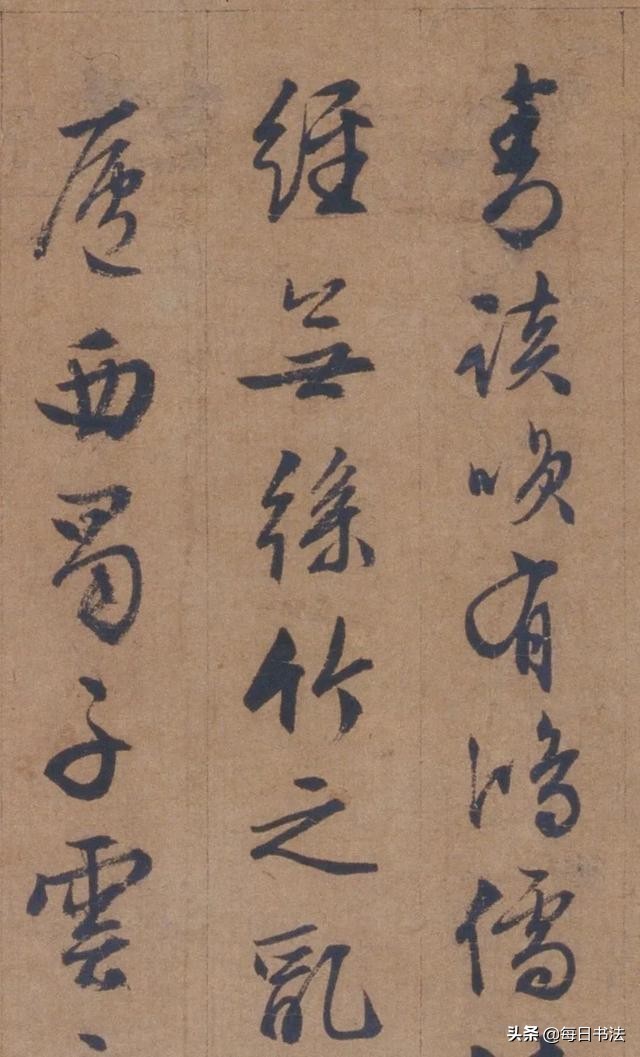 青談咲有鴻儒
經無絲竹之亂
廬西蜀子雲
头条 @每日书法